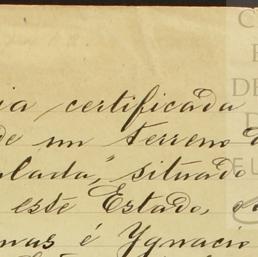 ia certificada
de un terreno
lada," situado
este Estado,
mas é Ygnacio